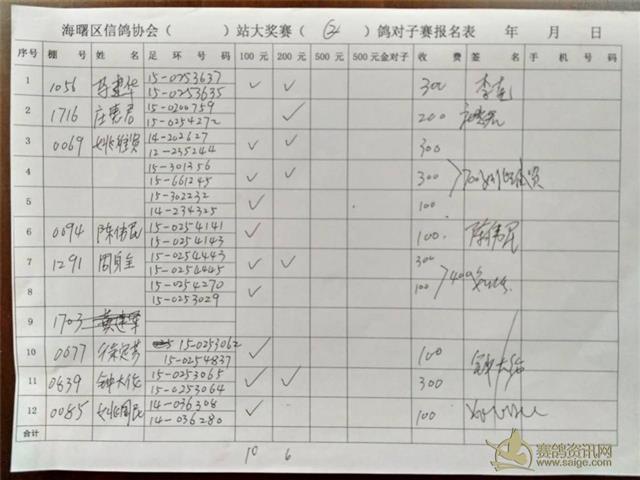 海曙区信鸽协会（ ）站大奖赛（ ② ）鸽对子赛报名表 年 月 日
序号 棚号 姓名 足环号码 100元 200元 500元 500元金对子 收费 签名 手机号码
1 1056 15-0253637 ✓ ✓ 300
15-0253635
2 1716 庄惠君 15-0200759 ✓ 200
15-0254272
3 0069 14-202627 ✓ ✓ 300
12-235244
4 15-301356 ✓ ✓ 300
15-661245
5 15-302232 ✓ 100
14-234325
6 0094 陈伟民 15-0254141 ✓ 100 陈伟民
15-0254143
7 1291 15-0254443 ✓ ✓ 300
15-0254445
8 15-0254270 ✓ 100
15-0253029
9 1703
10 0077 15-0253062 ✓ 100
15-0254837
11 0839 钟大伦 15-0253065 ✓ ✓ 300 钟大伦
15-0253064
12 0085 姚国民 14-036308 ✓ 100
14-036280
合计
10 6
赛鸽资讯网
www.saige.com